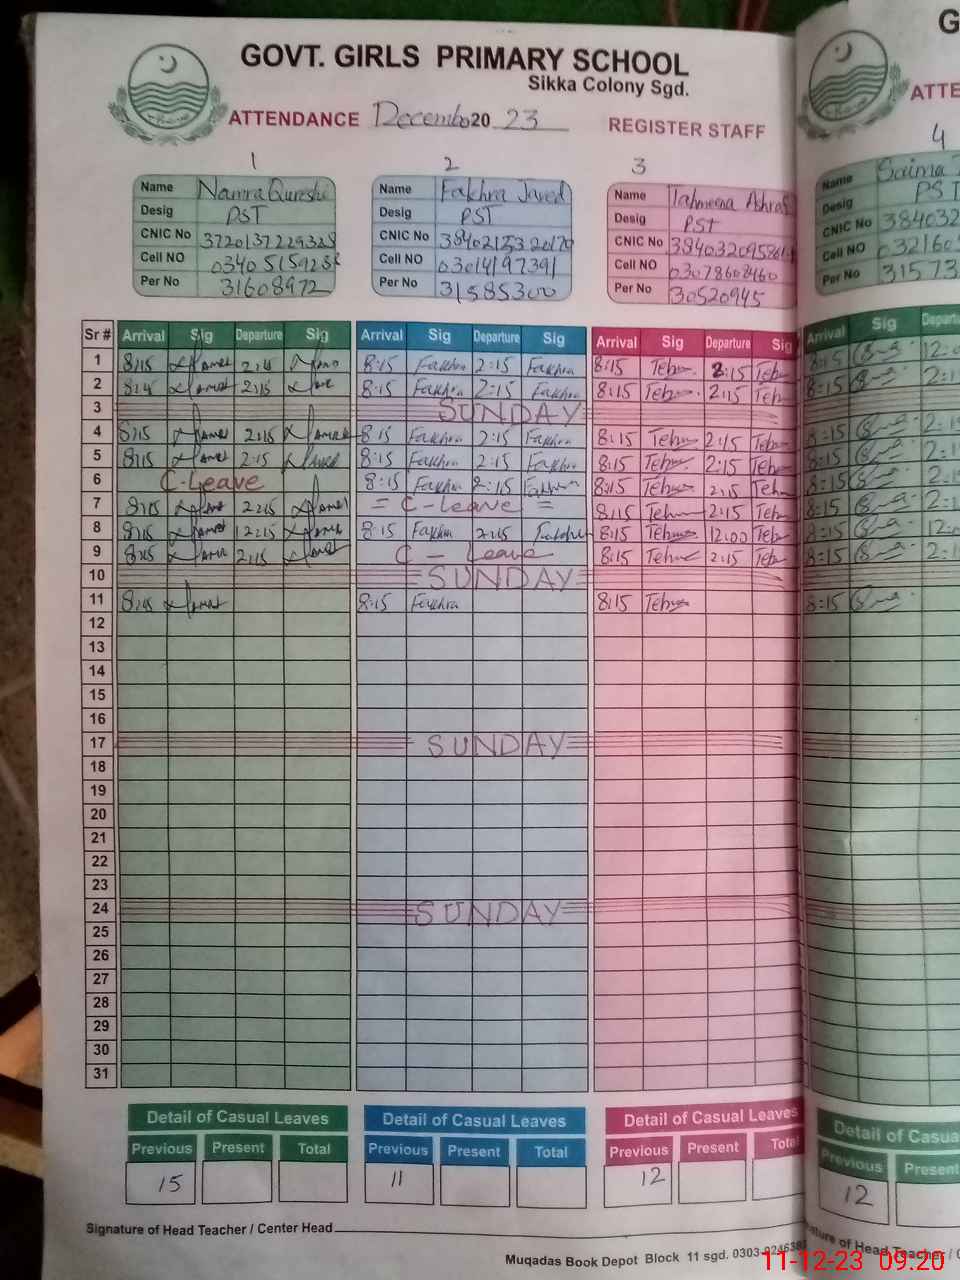 GOVT. GIRLS PRIMARY SCHOOL
Sikka Colony Sgd.
ATTENDANCE December 20 23 REGISTER STAFF
1 2 3 4
Name Namra Qureshi Name Fakhra Javed Name Tahmeena Ashraf Name Saima
Desig PST Desig PST Desig PST Desig PST
CNIC No 3720137229328 CNIC No CNIC No CNIC No 384032
Cell NO Cell NO 03014197391 Cell NO 03078608460 Cell NO 032160
Per No 31608972 Per No 31585300 Per No 30520945 Per No 31573
Sr # Arrival Sig Departure Sig Arrival Sig Departure Sig Arrival Sig Departure Sig Arrival Sig
1 8:15 2:15 8:15 Fakhra 2:15 Fakhra 8:15 Tehm 2:15 Teh 8:15 12:
2 8:15 2:15 8:15 Fakhra 2:15 Fakhra 8:15 Tehm 2:15 Teh 8:15 2:1
3 SUNDAY
4 8:15 2:15 8:15 Fakhra 2:15 Fakhra 8:15 Tehm 2:15 Teh 8:15 2:1
5 8:15 2:15 8:15 Fakhra 2:15 Fakhra 8:15 Tehm 2:15 Teh 8:15 2:1
6 C-Leave 8:15 Fakhra 2:15 Fakhra 8:15 Tehm 2:15 Teh 8:15 2:1
7 8:15 2:15 = C-leave = 8:15 Tehm 2:15 Teh 8:15 2:1
8 8:15 12:15 8:15 Fakhra 2:15 Fakhra 8:15 Tehm 12:00 Teh 8:15 12:0
9 8:15 2:15 C - Leave 8:15 Tehm 2:15 Teh 8:15 2:1
10 SUNDAY
11 8:15 8:15 Fakhra 8:15 Tehm 8:15
12
13
14
15
16
17 SUNDAY
18
19
20
21
22
23
24 SUNDAY
25
26
27
28
29
30
31
Detail of Casual Leaves Detail of Casual Leaves Detail of Casual Leaves Detail of Casua
Previous Present Total Previous Present Total Previous Present Total Previous Present
15 11 12 12
Signature of Head Teacher / Center Head
Muqadas Book Depot Block 11 sgd. 0303
11-12-23 09.20